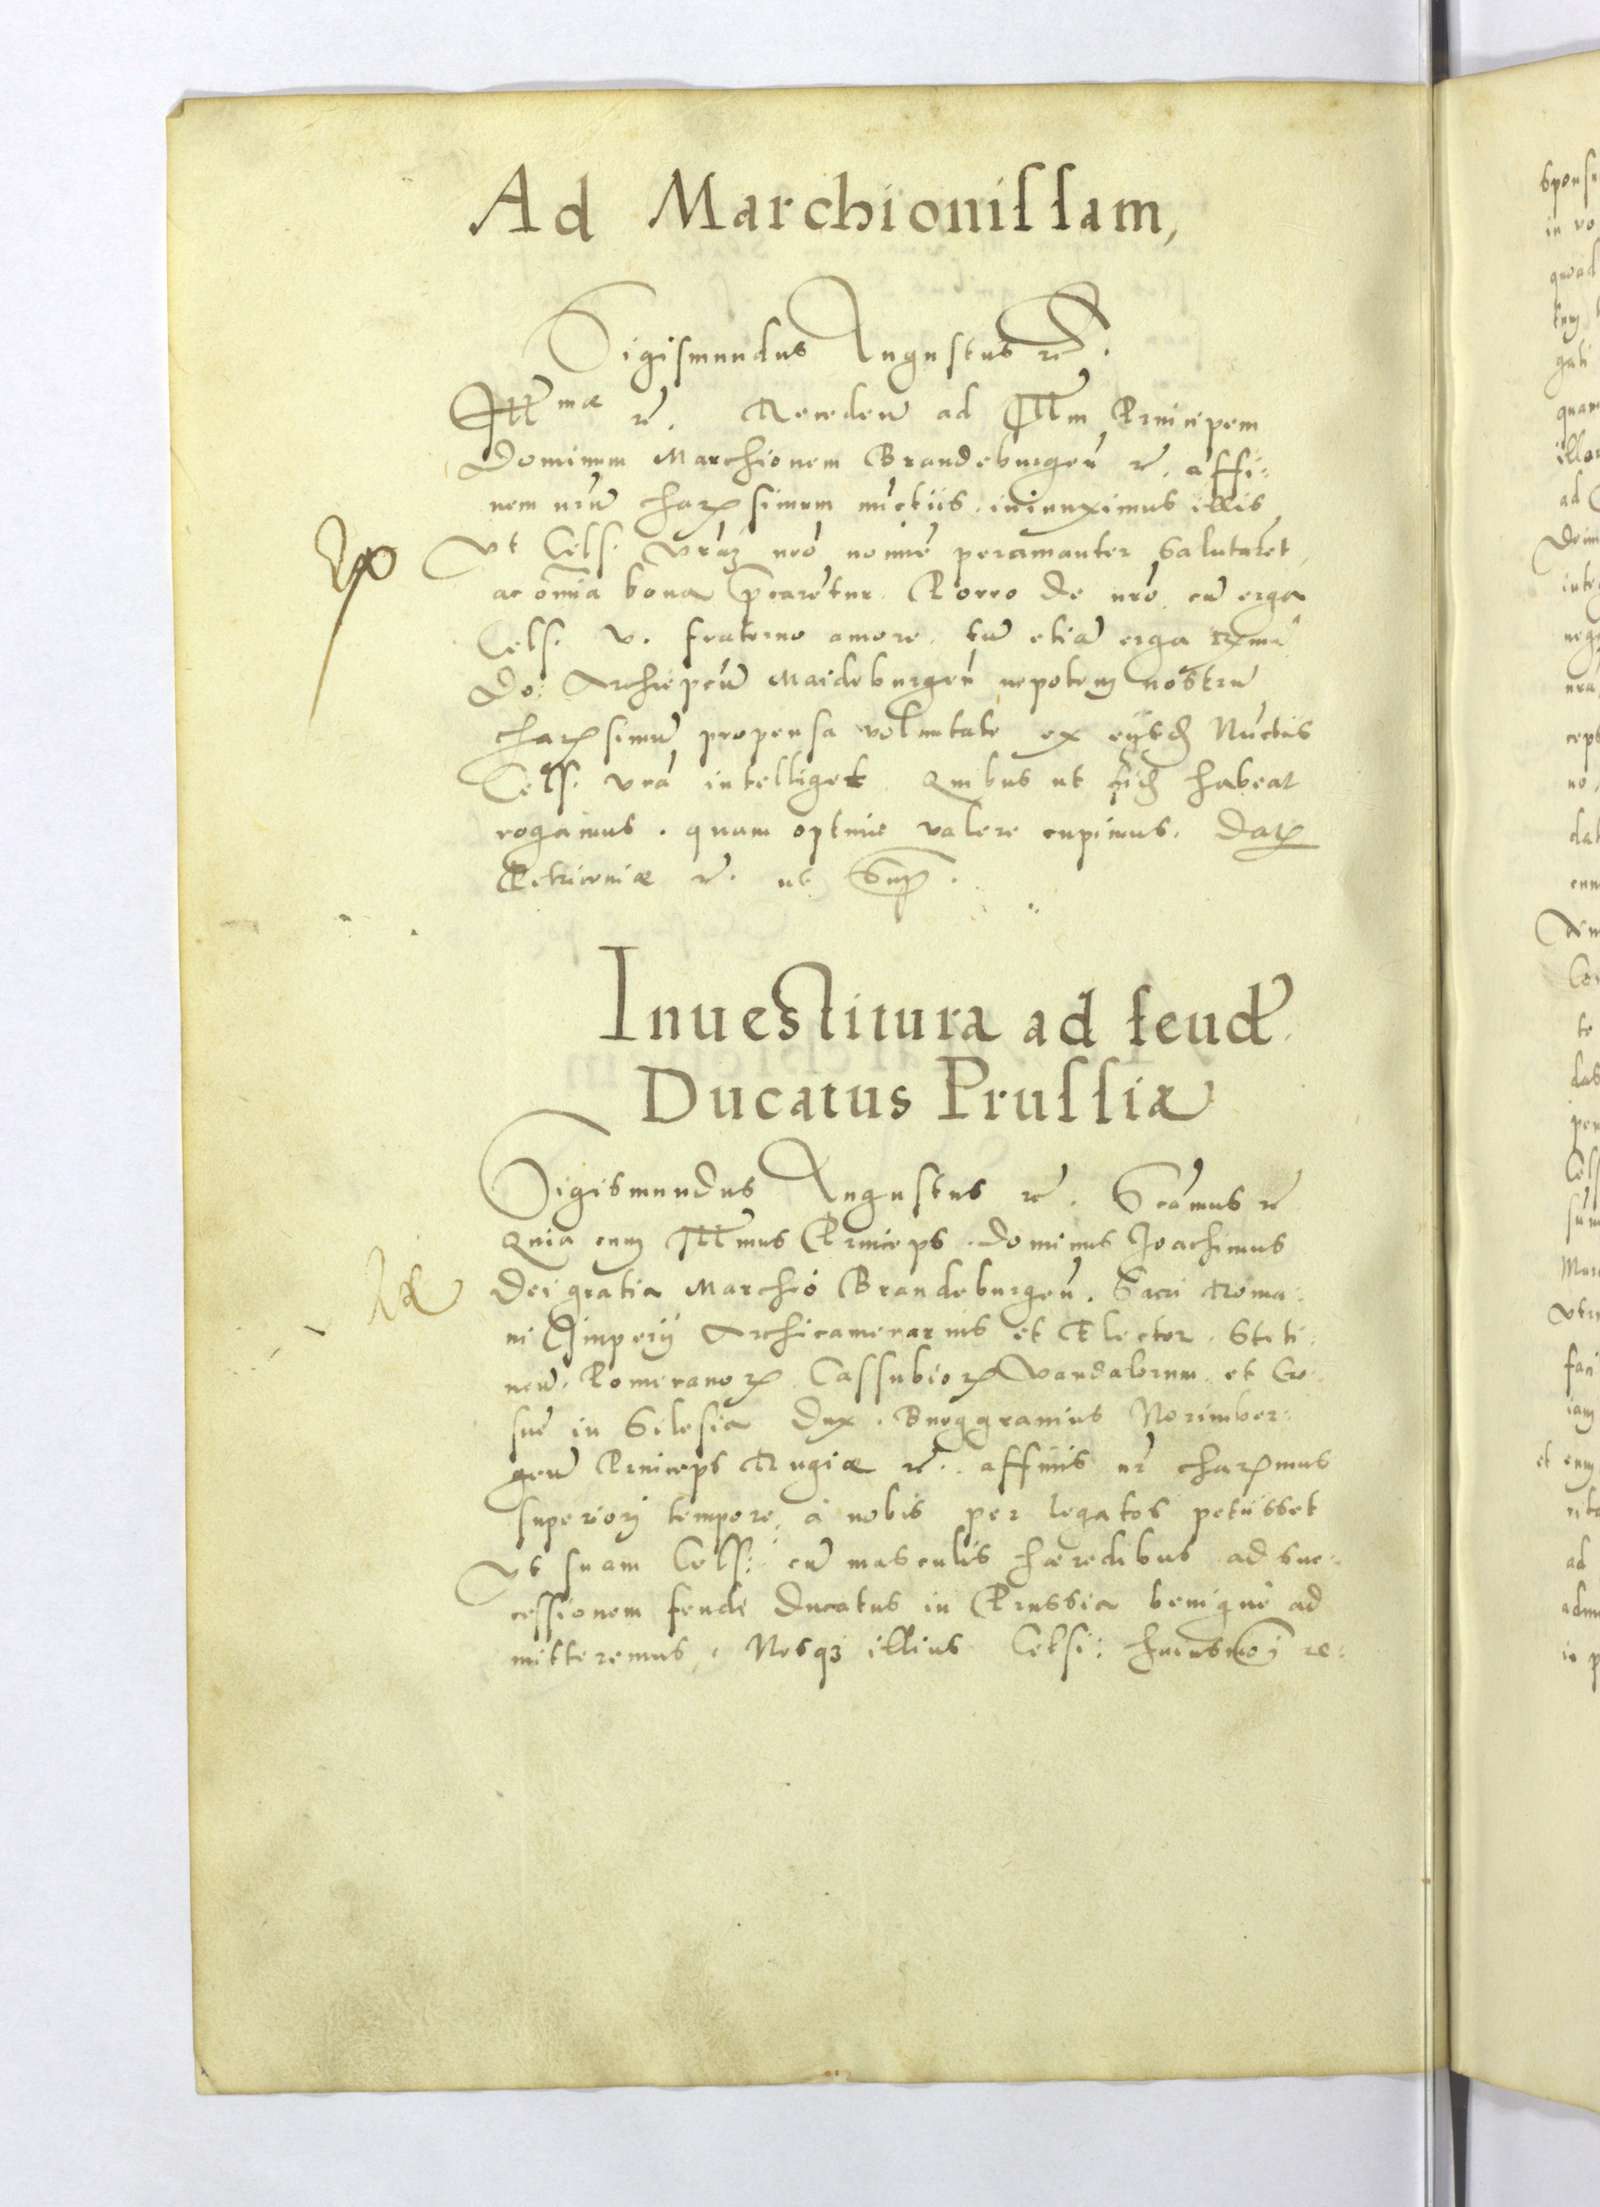 Ad Marchionissam,
Sigismundus Augustus rc.
Illmae rc. Recedeñ ad Illm Principem
Dominum Marchionem Brandeburgeñ rc. affi:
nem nrum charissimum nuctiis iniunximus illis
Vt Cels. vram nro nomine peramanter Salutaret,
ac omnia bona precaretur. Porro de nro, cum erga
Cels. v. fraterno amore, tum etiam erga Rmum
Do: Archiepcum Maideburgeñ nepotem nostrum
charissimum propensa voluntate ex eijsdem Nuctiis
Cels. vra intelliget. Quibus ut fidem habeat
rogamus. quam optime valere cupimus. Datum
Petricouiae rc. ut Supra.
Inuestitura ad feud.
Ducatus Prussiae
Sigismundus Augustus rc. Sčamus rc
Quia cum Illmus Princeps Dominus Joachimus
Dei gratia Marchio Brandeburgeñ. Sacri Roma:
ni Imperij Archicamerarius et Elector. Steti:
neñ. Pomeranorum Cassubiorum Vandalorum et Cro:
sne in Silesia Dux. Burggrauius Norimber:
geñ Princeps Rugiae rc. affinis nr charissimus
superiori tempore, à nobis per legatos petiisset
Vt suam Cels: cum masculis haeredibus ad suc:
cessionem feudi Ducatus in Prussia benigne ad
mitteremus. Nosq3 illius Celsi: huiusmodi re: